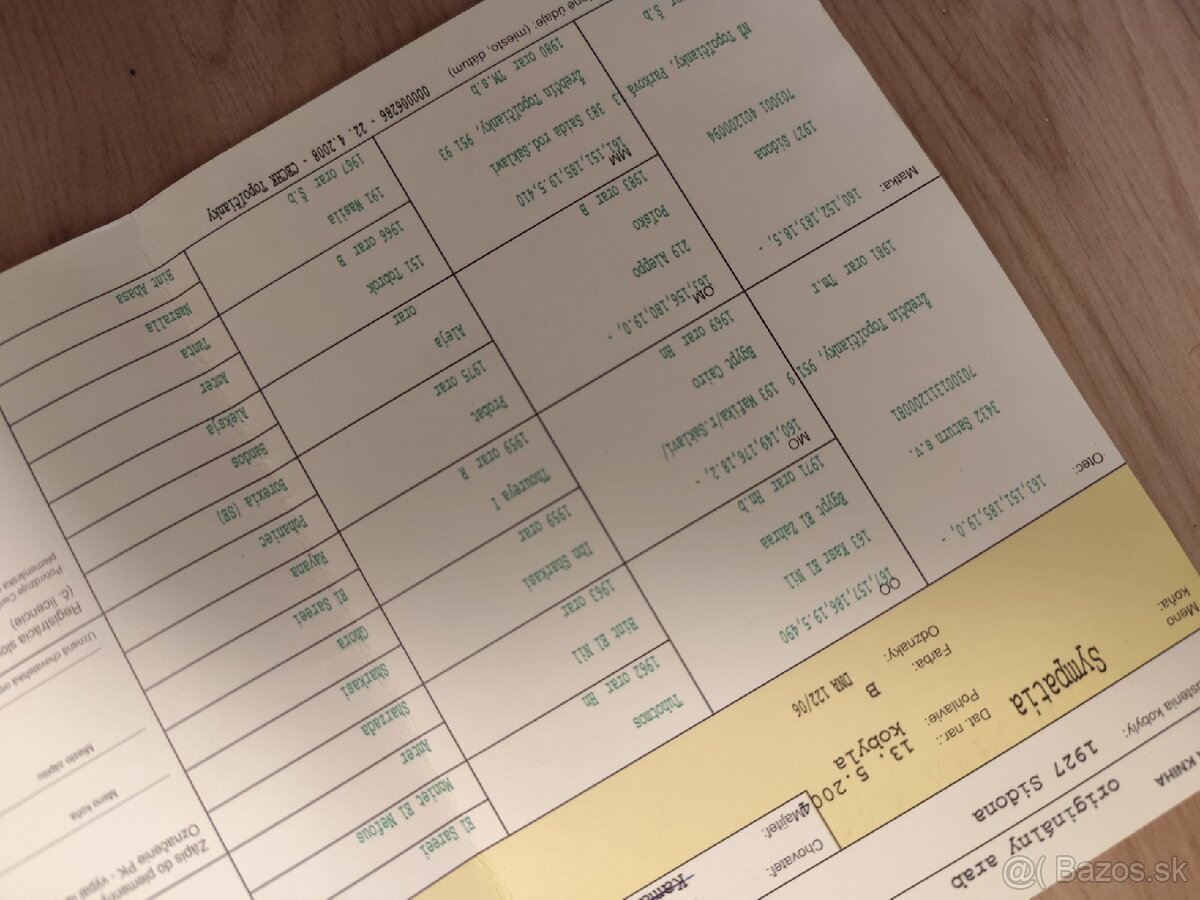 KNIHA
originálny arab
1927 Sidona
Meno
koňa:
Sympatia
Dat. nar.:
13. 5.200
Pohlavie:
Kobyla
Farba:
B
Odznaky:
DNA 122/06
Chovateľ:
Majiteľ:
Otec:
163,151,185,19.0, -
3432 Saturn s.v.
703001311200081
Žrebčín Topoľčianky, 951 9
1981 orar Tm.r
Matka:
160,152,183,18.5, -
1927 Sidona
703001 401200094
NŽ Topoľčianky, Parková
OO
167,157,186,19.5,490
163 Kasr El Nil
Egypt El Zahraa
1971 orar Hn.b
MO
160,149,176,18.2, -
193 Wafika/r.Saklawi/
Egypt Cairo
1969 orar Hn
OM
163,156,180,19.0, -
219 Aleppo
Poľsko
1983 orar B
MM
162,151,185,19.5,410
383 Saida rod.Saklawi
Žrebčín Topoľčianky, 951 93
1980 orar TM.s.b
Tuhotmos
1962 orar Hn
Bint El Nil
1963 orar
Ibn Sharkasi
1959 orar
Thoureya I
1959 orar R
Probat
1975 orar
Aleja
orar
151 Tobrok
1966 orar B
191 Wasila
1967 orar Š.b
El Sareei
Moniet El Nefous
Anter
Sharzada
Sharkasi
Ghora
El Sareei
Rayana
Pohaniec
Borexia (SB)
Bandos
Aleksja
Anter
Tanta
Nasralla
Bint Abasa
údaje: (miesto, dátum)
000006286 - 22. 4.2008 - CBCHK Topoľčianky
Zápis do plemenn
Označenie PK - výpa
Meno koňa
Miesto zápisu
Uznaná chovateľská or
Registrácia slo
(č. licencie)
Potvrdzuje Cen
plemenárska
@( Bazos.sk